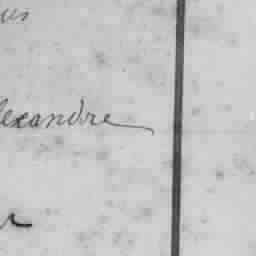 us
lexandre
r